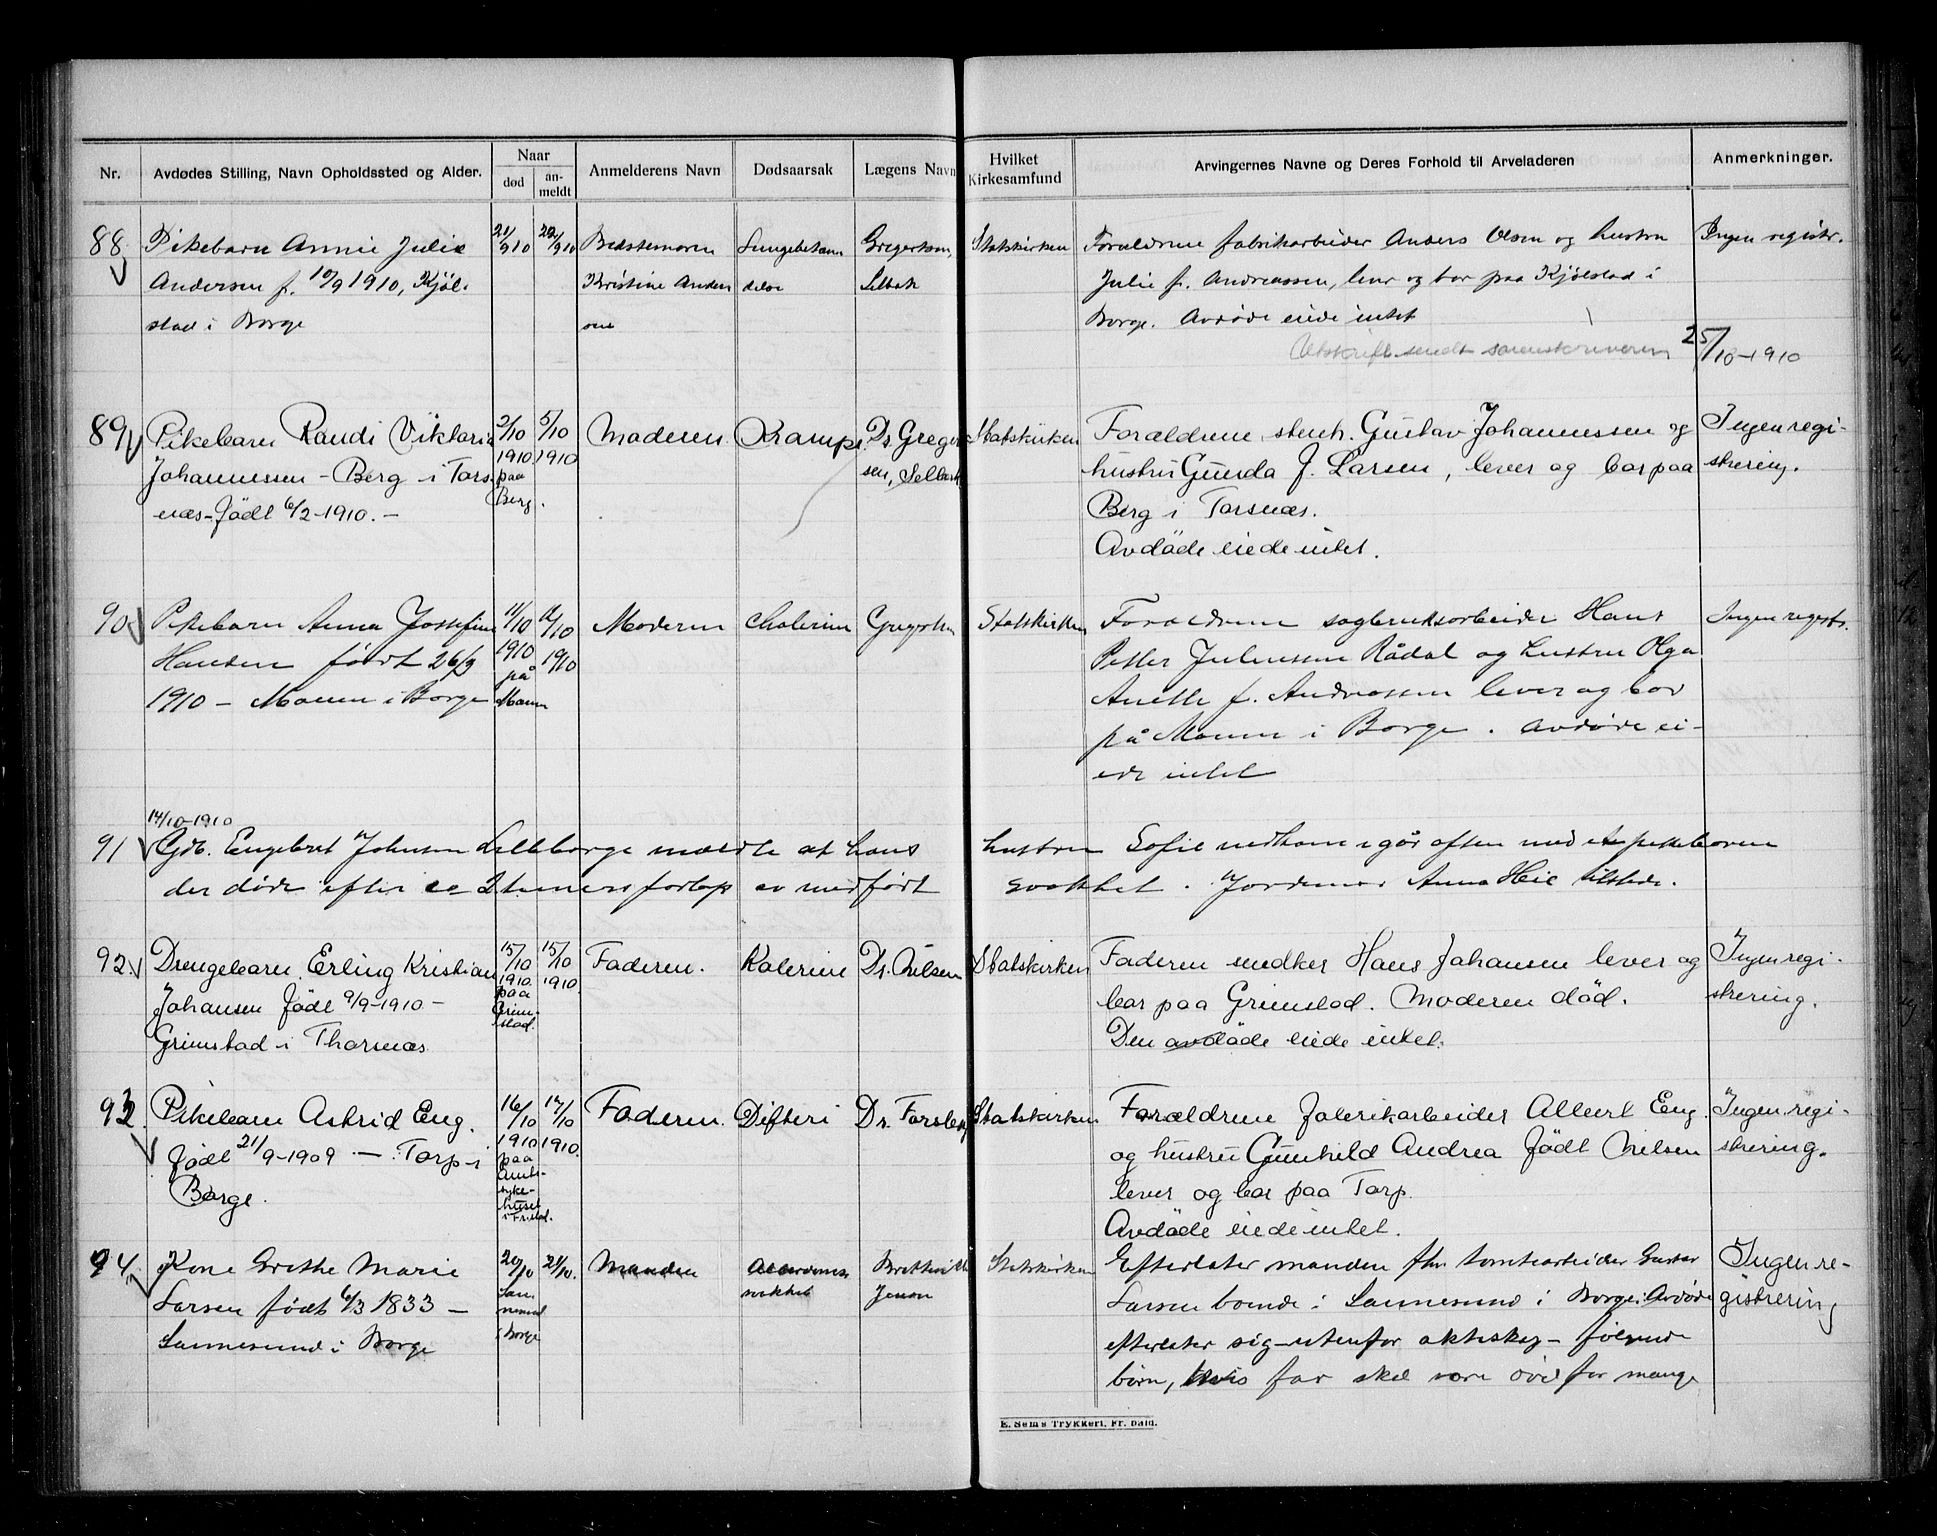 Nr. Avdødes Stilling, Navn Opholdssted og Alder. Naar død an-meldt Anmelderens Navn Dødsaarsak Lægens Navn Hvilket Kirkesamfund Arvingernes Navne og Deres Forhold til Arveladeren Anmerkninger.
88 Pikebarn Annie Julie 21/9 10 22/9 10 Bedstemoren Lungebetæn Gregersen, Statskirken Forældrene fabrikarbeider Anders Olsen og hustru Ingen registr.
Andersen f. 10/9 1910, Kjöl- Kristine Anders delse Selbak Julie f. Andreassen, lever og bor paa Kjölstad i
stad i Borge sen Borge. Avdøde eiede intet
Utskrift sendt sorenskriveren 25/10-1910
89 Pikebarn Randi Viktoria 2/10 5/10 Moderen Krampe Dr. Greger Statskirken Forældrene, stenh. Gustav Johannessen og Ingen regi-
Johannessen - Berg i Tors- 1910. 1910 sen, Selbak hustru Gunda f. Larsen, lever og bor paa strering.
næs - födt 6/2-1910. - paa Berg. Berg i Torsnæs.
Avdöde eiede intet.
90 Pikebarn Anna Josefine 11/10 11/10 Moderen Kolerine Gregersen Statskirken Forældrene sagbruksarbeider Hans Ingen registr.
Hansen født 26/3 1910 1910 Petter Julensen Rådal og hustru Olga
1910 - Moum i Borge på Moum Anette f. Andreassen lever og bor
på Moum i Borge. Avdøde ei-
ede intet
14/10-1910
91 Gdb. Engebret Johnsen Lilleborge meldte at hans hustru Sofie nedkom igår aften med et pikebarn
der døde efter ca 2 timers forløp av medført svakhet. Jordemor Anna Heie tilstede.
92 Drengebarn Erling Kristian 15/10 15/10 Faderen. Kolerine Dr. Nilsen Statskirken Faderen snedker Hans Johansen lever og Ingen regi-
Johansen Födt 9/9-1910 - 1910 1910. bor paa Grimstad. Moderen död. strering.
Grimstad i Thorsnæs paa Grimstad. Den avdöde eiede intet.
93 Pikebarn Astrid Eng. 16/10 17/10 Faderen. Difteri Dr. Forsberg Statskirken Forældrene fabrikarbeider Albert Eng Ingen regi-
födt 21/9-1909 - Torp i 1910 1910. og hustru Gunhild Andrea födt Nilsen strering.
Borge. paa Amts-syke-huset i Fr.stad. lever og bor paa Torp.
Avdöde eiede intet.
94 Kone Grethe Marie 20/10 21/10. Manden Alderdoms- Statskirken Efterlater manden fhv. tomtearbeider Gustav Ingen re-
Larsen født 6/3 1833 - Sannesund svakhet Jensen Larsen boende i Sannesund i Borge. Avdøde gistrering
Sannesund i Borge i Borge efterlater sig - utenfor ekteskap - følgende
børn, hvis far skal være død for mange
E. Sems Trykkeri, Fr. hald.